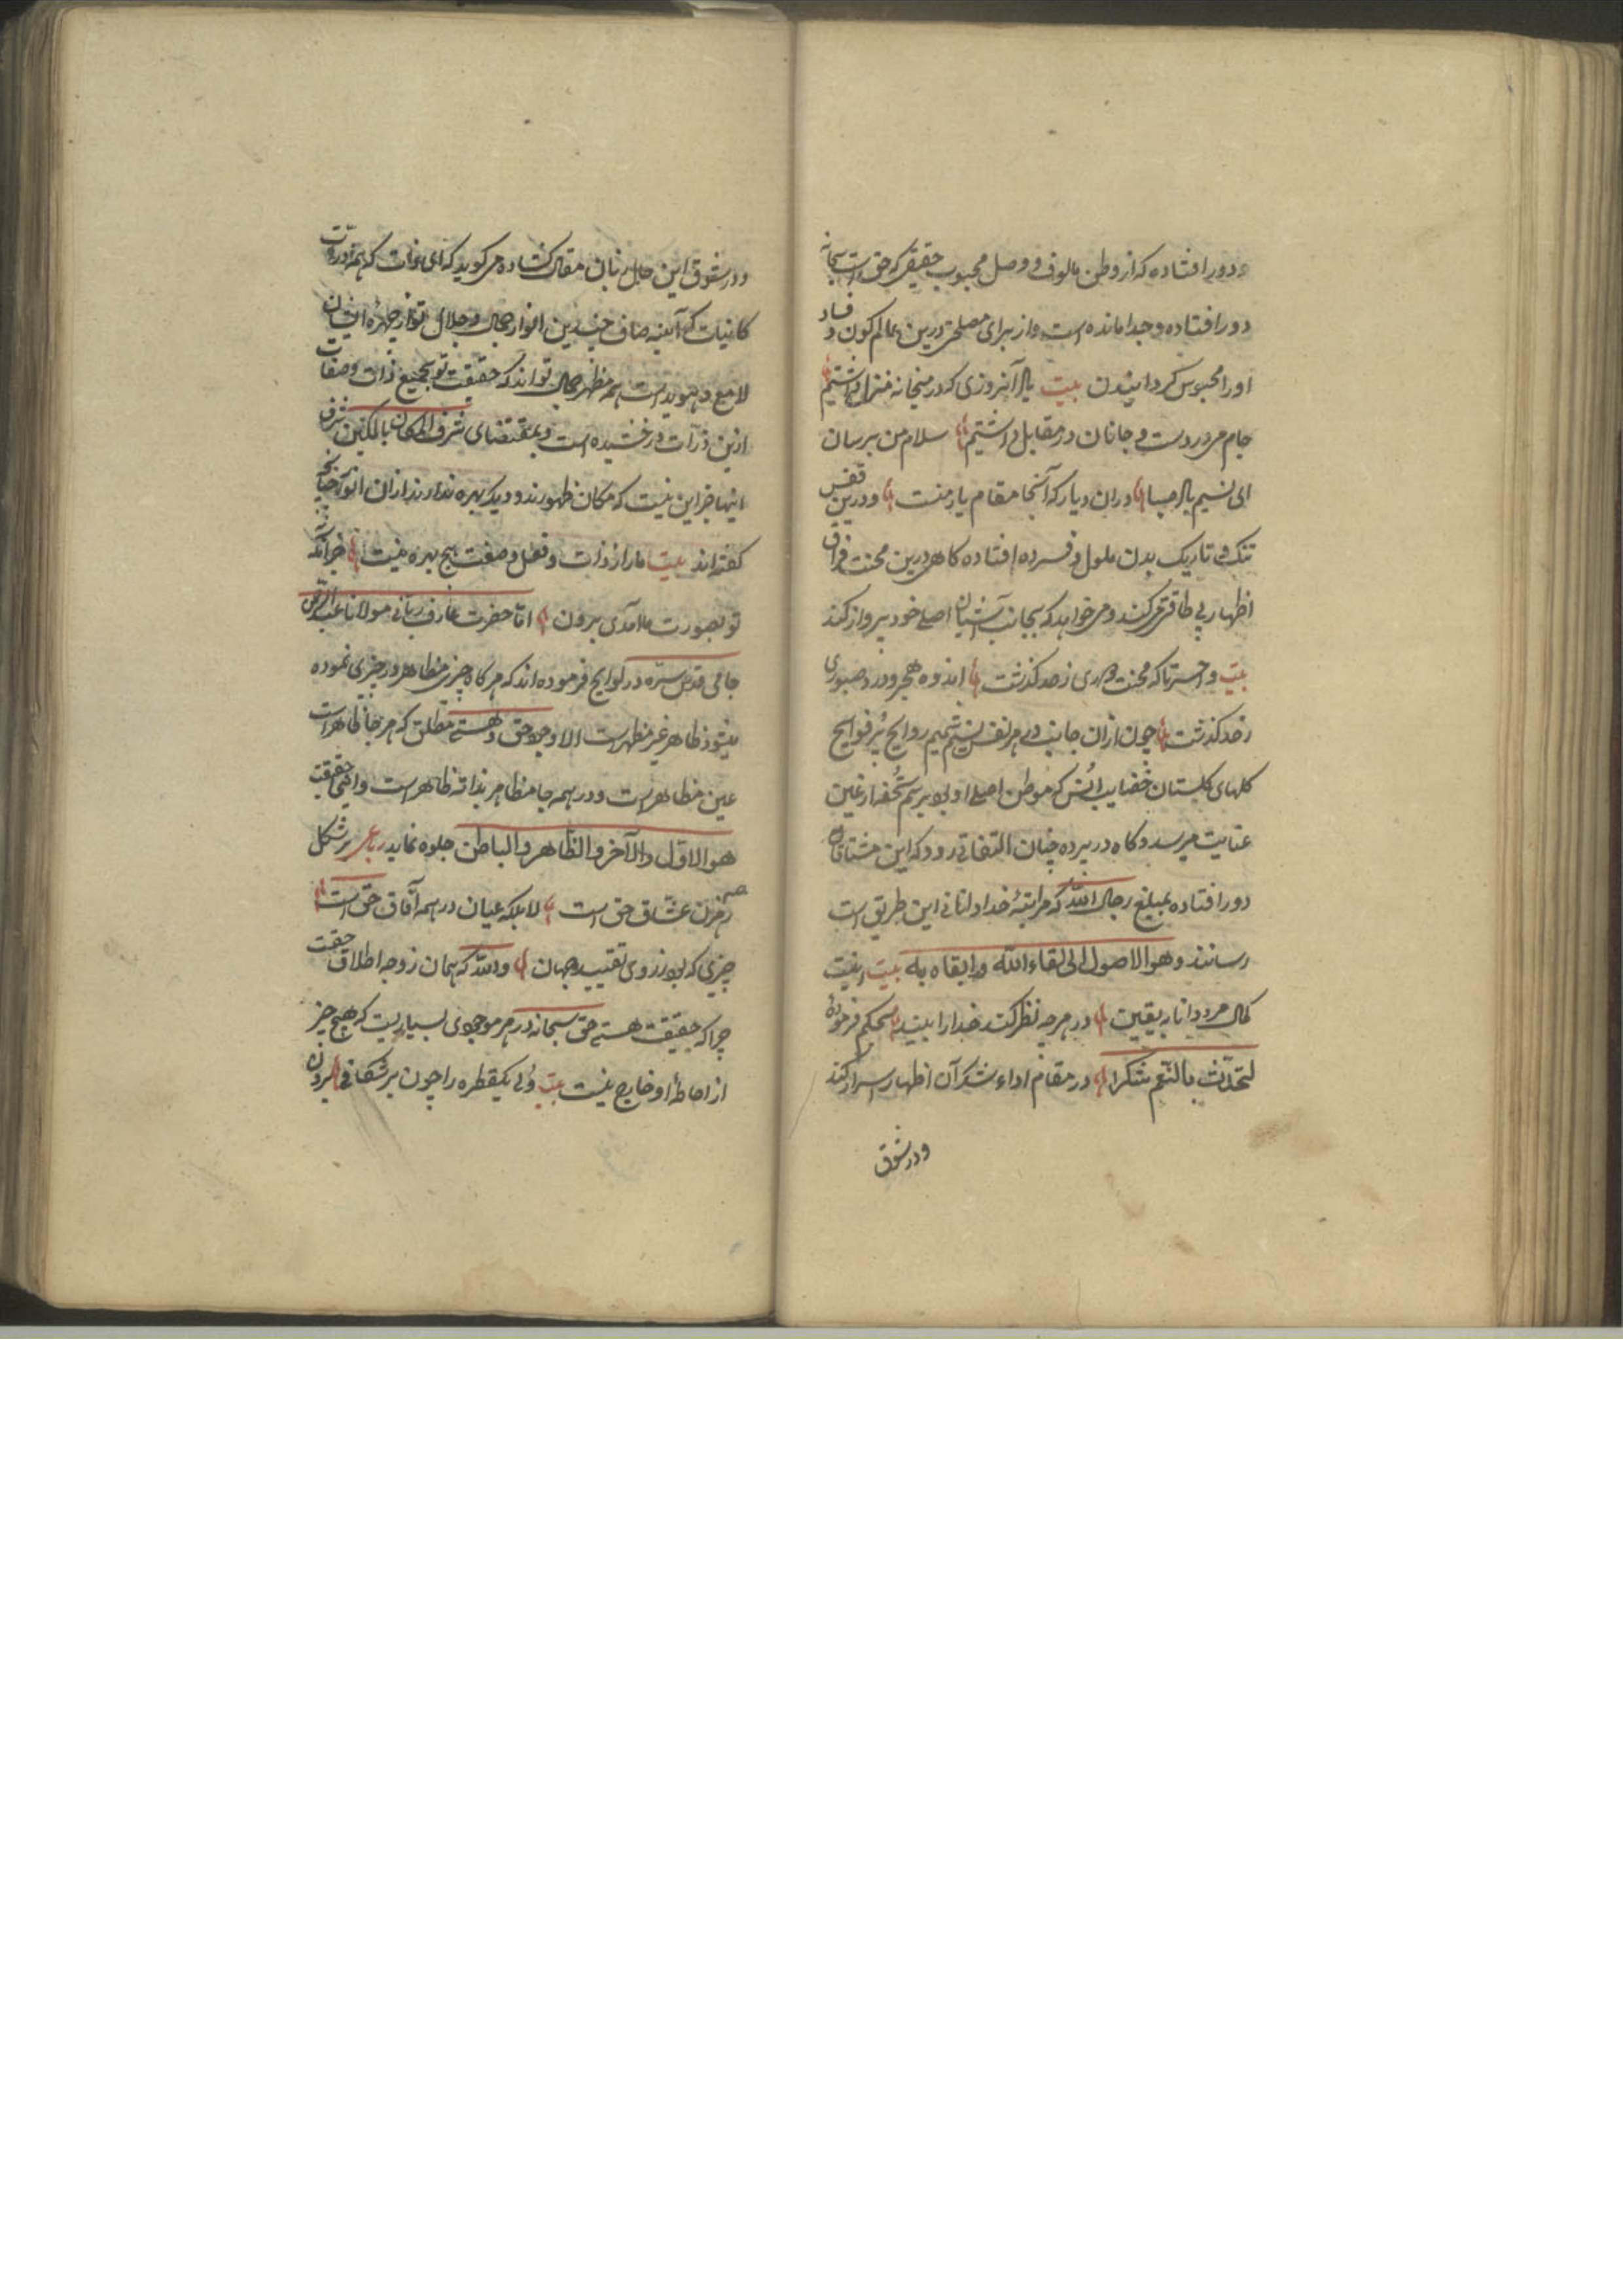 و دور افتاده که از وطن مالوف و وصل محبوب حقیقی که حق است سبحانه
دور افتاده و جدا مانده است و از برای مصلحتی درین عالم کون و فساد
او را محبوس گردانیدن بیت یاد آنروزی که در میخانه منزل داشتیم
جام می در دست و جانان در مقابل داشتیم سلام من برسان
ای نسیم باد صبا دران دیار که آنجا مقام یار منست و درین قفس
تنک و تاریک بدن ملول و فسرده افتاده کاهی درین محنت فراق
اظهار بی طاقتی میکند و میخواهد که بجانب آشیان اصلی خود پرواز کند
بیت وا حسرتا که محنت دوری ز حد گذشت اندوه هجر و درد صبوری
ز حد گذشت چون ازان جانب دم هر نفس نسیم شمیم روایح پر فوایح
کلهای کلستان انس که موطن اصلی او بود برسم تحفه از عین
عنایت میرسد و کاه در پرده چنان التفاتی رود که این مشتاقان
دور افتاده بمبلغ رجال الله که مرتبهٔ خدا دانانی این طریق است
رسانند و هو الاصول الی لقاء الله و ابقاه به بیت اینست
کمال مرد دانا به یقین در هرچه نظر کند خدا را بیند بحکم فرمودهٔ
لتحدّث بالنّعم شکرا در مقام اداء شکر آن اظهار اسرار کند
و در شوق
و در شوق این حال زبان مقال کشاده می کوید که ای که همه ذرّات
کاینات که آیینه صاف چندین انوار جمال و جلال تو از چهره ایشان
لامع و هویداست همه مظهر جمال تو اند که حقیقت تو بجمیع ذات و صفات
ازین ذرّات درخشیده است و بمقتضای شرف المکان بالمکین شرف
اینها جز این نیست که مکان ظهورند و دیکر بهره ندارند ازان انوار چنانچه
کفته اند بیت ما را ز ذات و فعل و صفت هیچ بهره نیست جز آنکه
تو بصورت ما آمدی برون امّا حضرت عارف ربّانی مولانا عبد الرّحمن
جامی قدّس سرّه در لوایح فرموده اند که هرکاه چیزی مظاهر در چیزی نموده
میشود ظاهر غیر مظهر است الا وجود حق و هستی مطلق که هر جا ظاهر است
عین مظاهر است و در همه جا مظاهر بذاته ظاهر است و این حقیقت
هو الاوّل و الآخر و الظّاهر و الباطن جلوه نماید رباعی بر شکل
رهزن عشّاق حق است لا بلکه عیان در همه آفاق حق است
چیزی که بود ز روی تقیید جهان والله که همان ز وجه اطلاق حقست
چرا که حقیقت هستی حق سبحانه در هر موجودی بسیاریست که هیچ چیز
از احاطهٔ او خارج نیست بیت ولی یکقطره را چون بر شکافی برون